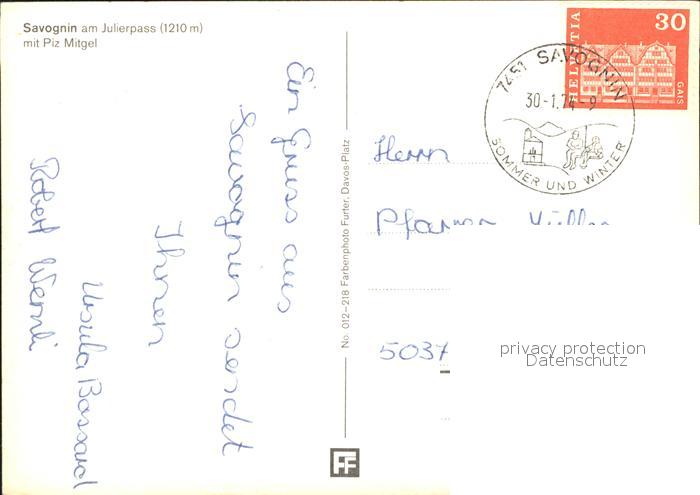 Savognin am Julierpass (1210 m)
mit Piz Mitgel
Ein Gruss aus
Savognin sendet
Ihnen
Ursula Bossard
Robert Wernli
No. 012-218 Farbenphoto Furter, Davos-Platz
FF
HELVETIA
30
GAIS
7451 SAVOGNIN
30-1.74-9
SOMMER UND WINTER
Herrn
Pfarrer
5037
privacy protection
Datenschutz